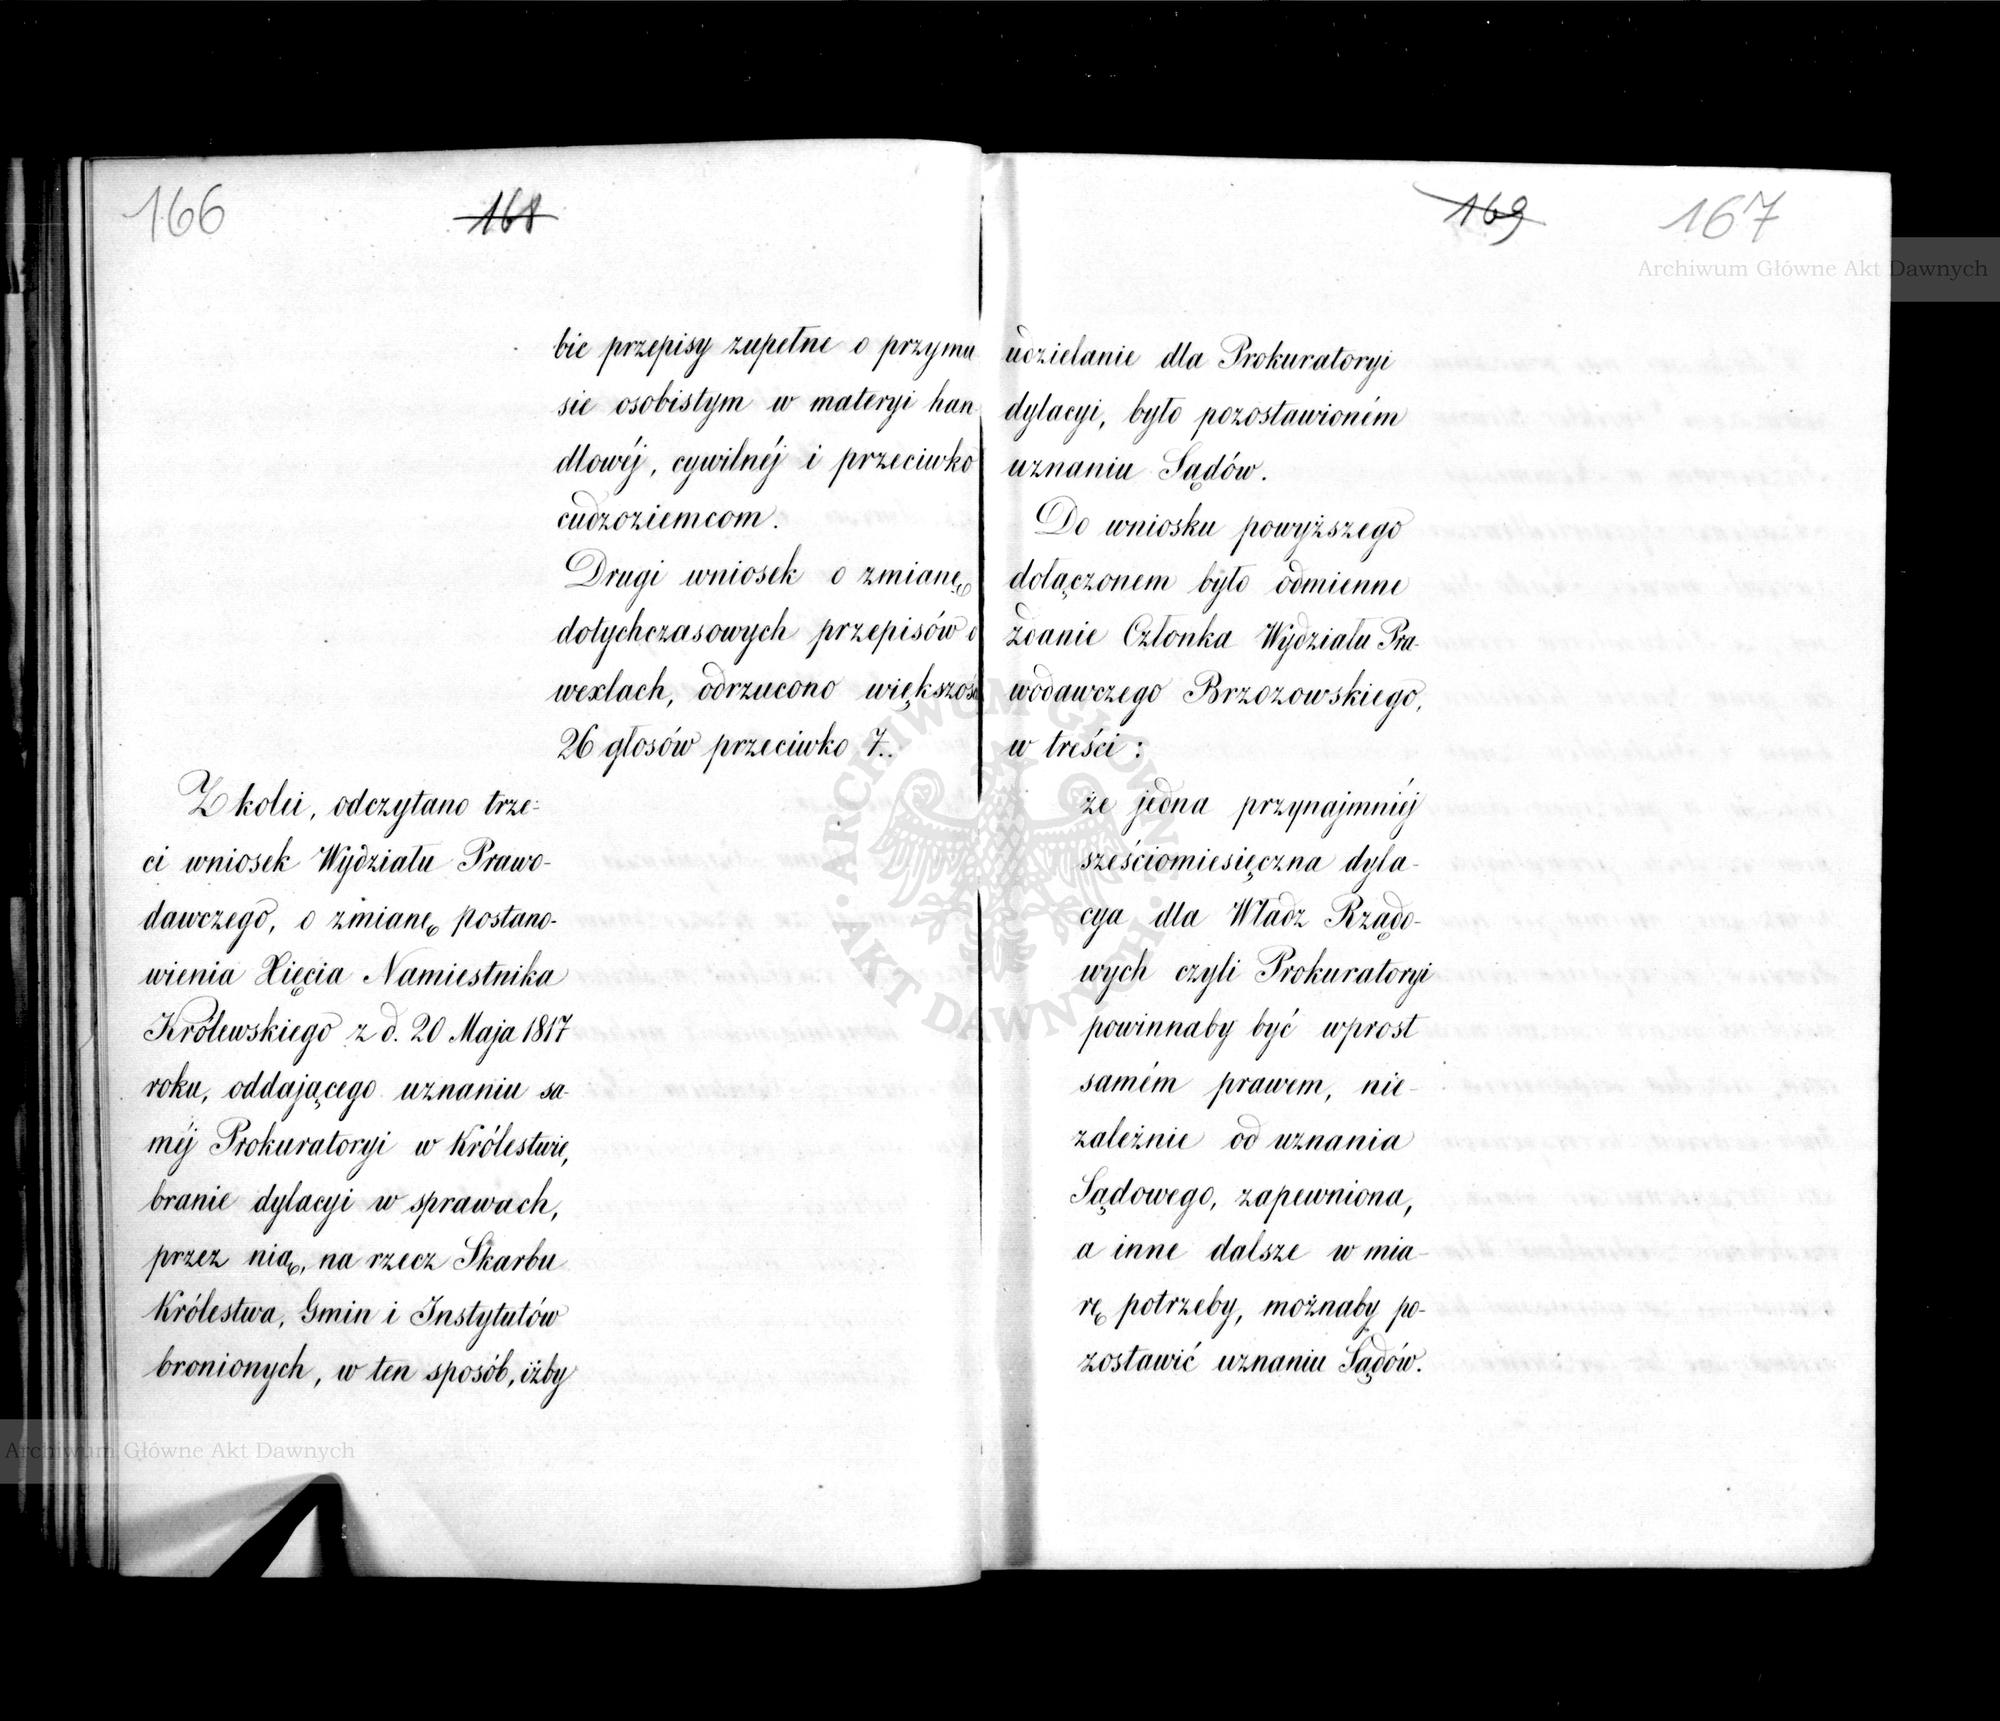 166
168
bie przepisy zupełne o przymu
sie osobistym w materyi han
dlowéj, cywilnéj i przeciwko
cudzoziemcom.
Drugi wniosek o zmianę
dotychczasowych przepisów o
wexlach, odrzucono większoś
26 głosów przeciwko 7.
Z kolei, odczytano trze-
ci wniosek Wydziału Prawo-
dawczego, o zmianę postano-
wienia Xięcia Namiestnika
Królewskiego z d. 20 Maja 1817
roku, oddającego uznaniu sa-
méj Prokuratoryi w Królestwie,
branie dylacyi w sprawach,
przez nią, na rzecz Skarbu
Królestwa, Gmin i Instytutów
bronionych, w ten sposób, iżby
169
167
Archiwum Główne Akt Dawnych
udzielanie dla Prokuratoryi
dylacyi, było pozostawioném
uznaniu Sądów.
Do wniosku powyższego
dołączonem było odmienne
zdanie Członka Wydziału Pra-
wodawczego Brzozowskiego,
w treści:
że jedna przynajmniéj
sześciomiesięczna dyla-
cya dla Władz Rządo-
wych czyli Prokuratoryi
powinnaby być wprost
samém prawem, nie-
zależnie od uznania
Sądowego, zapewniona,
a inne dalsze w mia-
rę potrzeby, możnaby po-
zostawić uznaniu Sądów.
ARCHIWUM GŁÓWNE
AKT DAWNYCH
Archiwum Główne Akt Dawnych